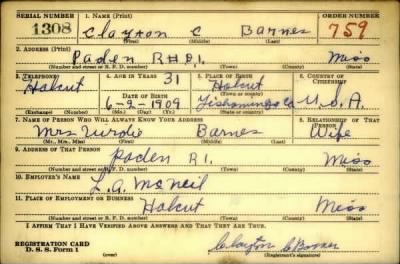 SERIAL NUMBER 1. NAME (Print) ORDER NUMBER
1308 Clayton C Barnes 759
(First) (Middle) (Last)
2. ADDRESS (Print)
Paden R#1. Miss
(Number and street or R. F. D. number) (Town) (County) (State)
3. TELEPHONE 4. AGE IN YEARS 5. PLACE OF BIRTH 6. COUNTRY OF CITIZENSHIP
Holcut 31 Holcut
DATE OF BIRTH (Town or county)
6-2-1909 Tishomingo Co U.S.A.
(Exchange) (Number) (Mo.) (Day) (Yr.) (State or country)
7. NAME OF PERSON WHO WILL ALWAYS KNOW YOUR ADDRESS 8. RELATIONSHIP OF THAT PERSON
Mrs Barnes Wife
(Mr., Mrs., Miss) (First) (Middle) (Last)
9. ADDRESS OF THAT PERSON
Paden R1. Miss
(Number and street or R. F. D. number) (Town) (County) (State)
10. EMPLOYER'S NAME
L.A. McNeil
11. PLACE OF EMPLOYMENT OR BUSINESS
Holcut Miss
(Number and street or R. F. D. number) (Town) (County) (State)
I AFFIRM THAT I HAVE VERIFIED ABOVE ANSWERS AND THAT THEY ARE TRUE.
REGISTRATION CARD
D. S. S. Form 1 Clayton C Barnes
(Registrant's signature)